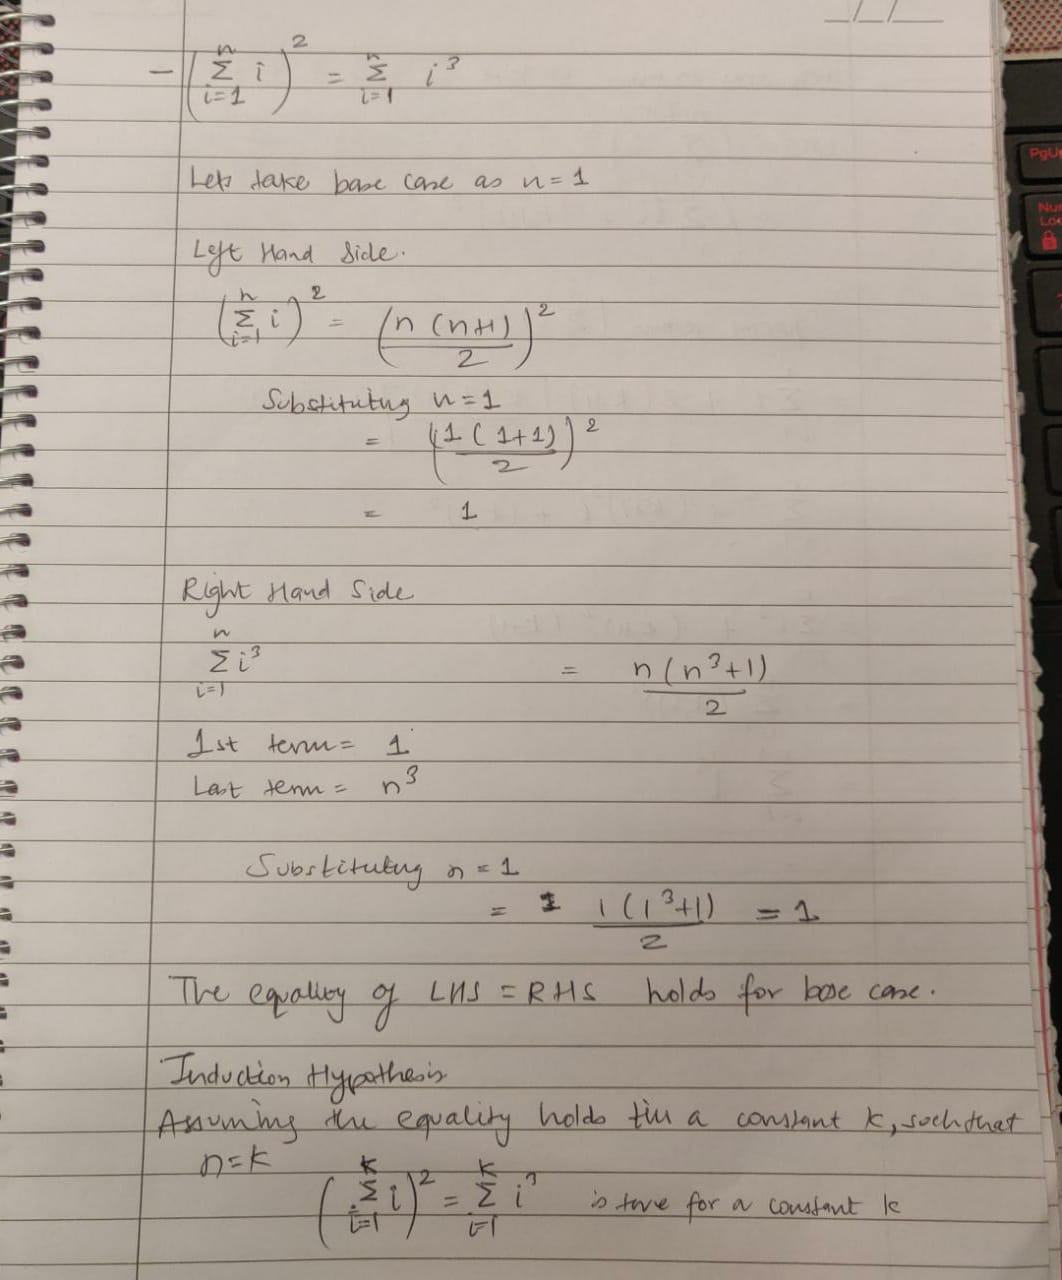 _/_/_
- (Σ_{i=1}^{n} i)² = Σ_{i=1}^{n} i³
Lets take base case as n=1
Left Hand Side.
(Σ_{i=1}^{n} i)² = (n(n+1)/2)²
Substituting n=1
= (1(1+1)/2)²
= 1
Right Hand Side
Σ_{i=1}^{n} i³ = n(n³+1)/2
1st term = 1
Last term = n³
Substituting n = 1
= 1(1³+1)/2 = 1
The equality of LHS = RHS holds for base case.
Induction Hypothesis
Assuming the equality holds till a constant k, such that
n=k
(Σ_{i=1}^{k} i)² = Σ_{i=1}^{k} i³ is true for a constant k
PgU
Num
Loc